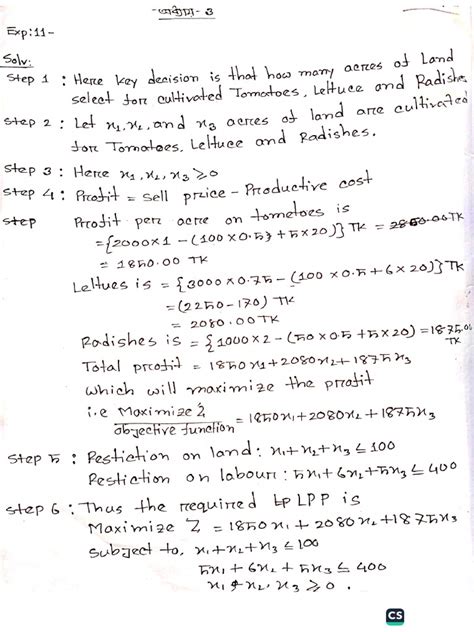 অধ্যায় - ৩
Exp:11-
Solv:
Step 1 : Here key decision is that how many acres of Land
select for cultivated Tomatoes, Lettuce and Radishes
Step 2 : Let x₁,x₂, and x₃ acres of land are cultivated
for Tomatoes, Lettuce and Radishes.
Step 3 : Here x₁, x₂, x₃ ≥ 0
Step 4 : Profit = sell price - Productive cost
Step Profit per acre on tometoes is
= {2000×1 - (100×0.5) + 5×20)} TK =
= 1850.00 TK
Lettues is = {3000×0.75 - (100×0.5+6×20)} TK
= (2250-170) TK
= 2080.00 TK
Radishes is = {1000×2 - (50×0.5+5×20) = 1875.00
TK
Total profit = 1850x₁+2080x₂+1875x₃
which will maximize the profit
i.e Maximize Z = 1850x₁+2080x₂+1875x₃
objective function
Step 5 : Restiction on land: x₁+x₂+x₃ ≤ 100
Restiction on labour: 5x₁+6x₂+5x₃ ≤ 400
Step 6 : Thus the required LPP is
Maximize Z = 1850x₁+2080x₂+1875x₃
subject to, x₁+x₂+x₃ ≤ 100
5x₁+6x₂+5x₃ ≤ 400
x₁, x₂, x₃ ≥ 0.
CS